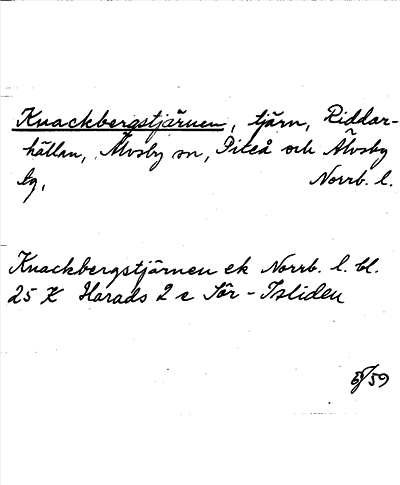 Knackbergstjärnen, tjärn, Riddar-
hällan, Älvsby sn, Piteå och Älvsby
tg, Norrb. l.
Knackbergstjärnen ek Norrb. l. bl.
25 K Harads 2 c Sör-Isliden
/59